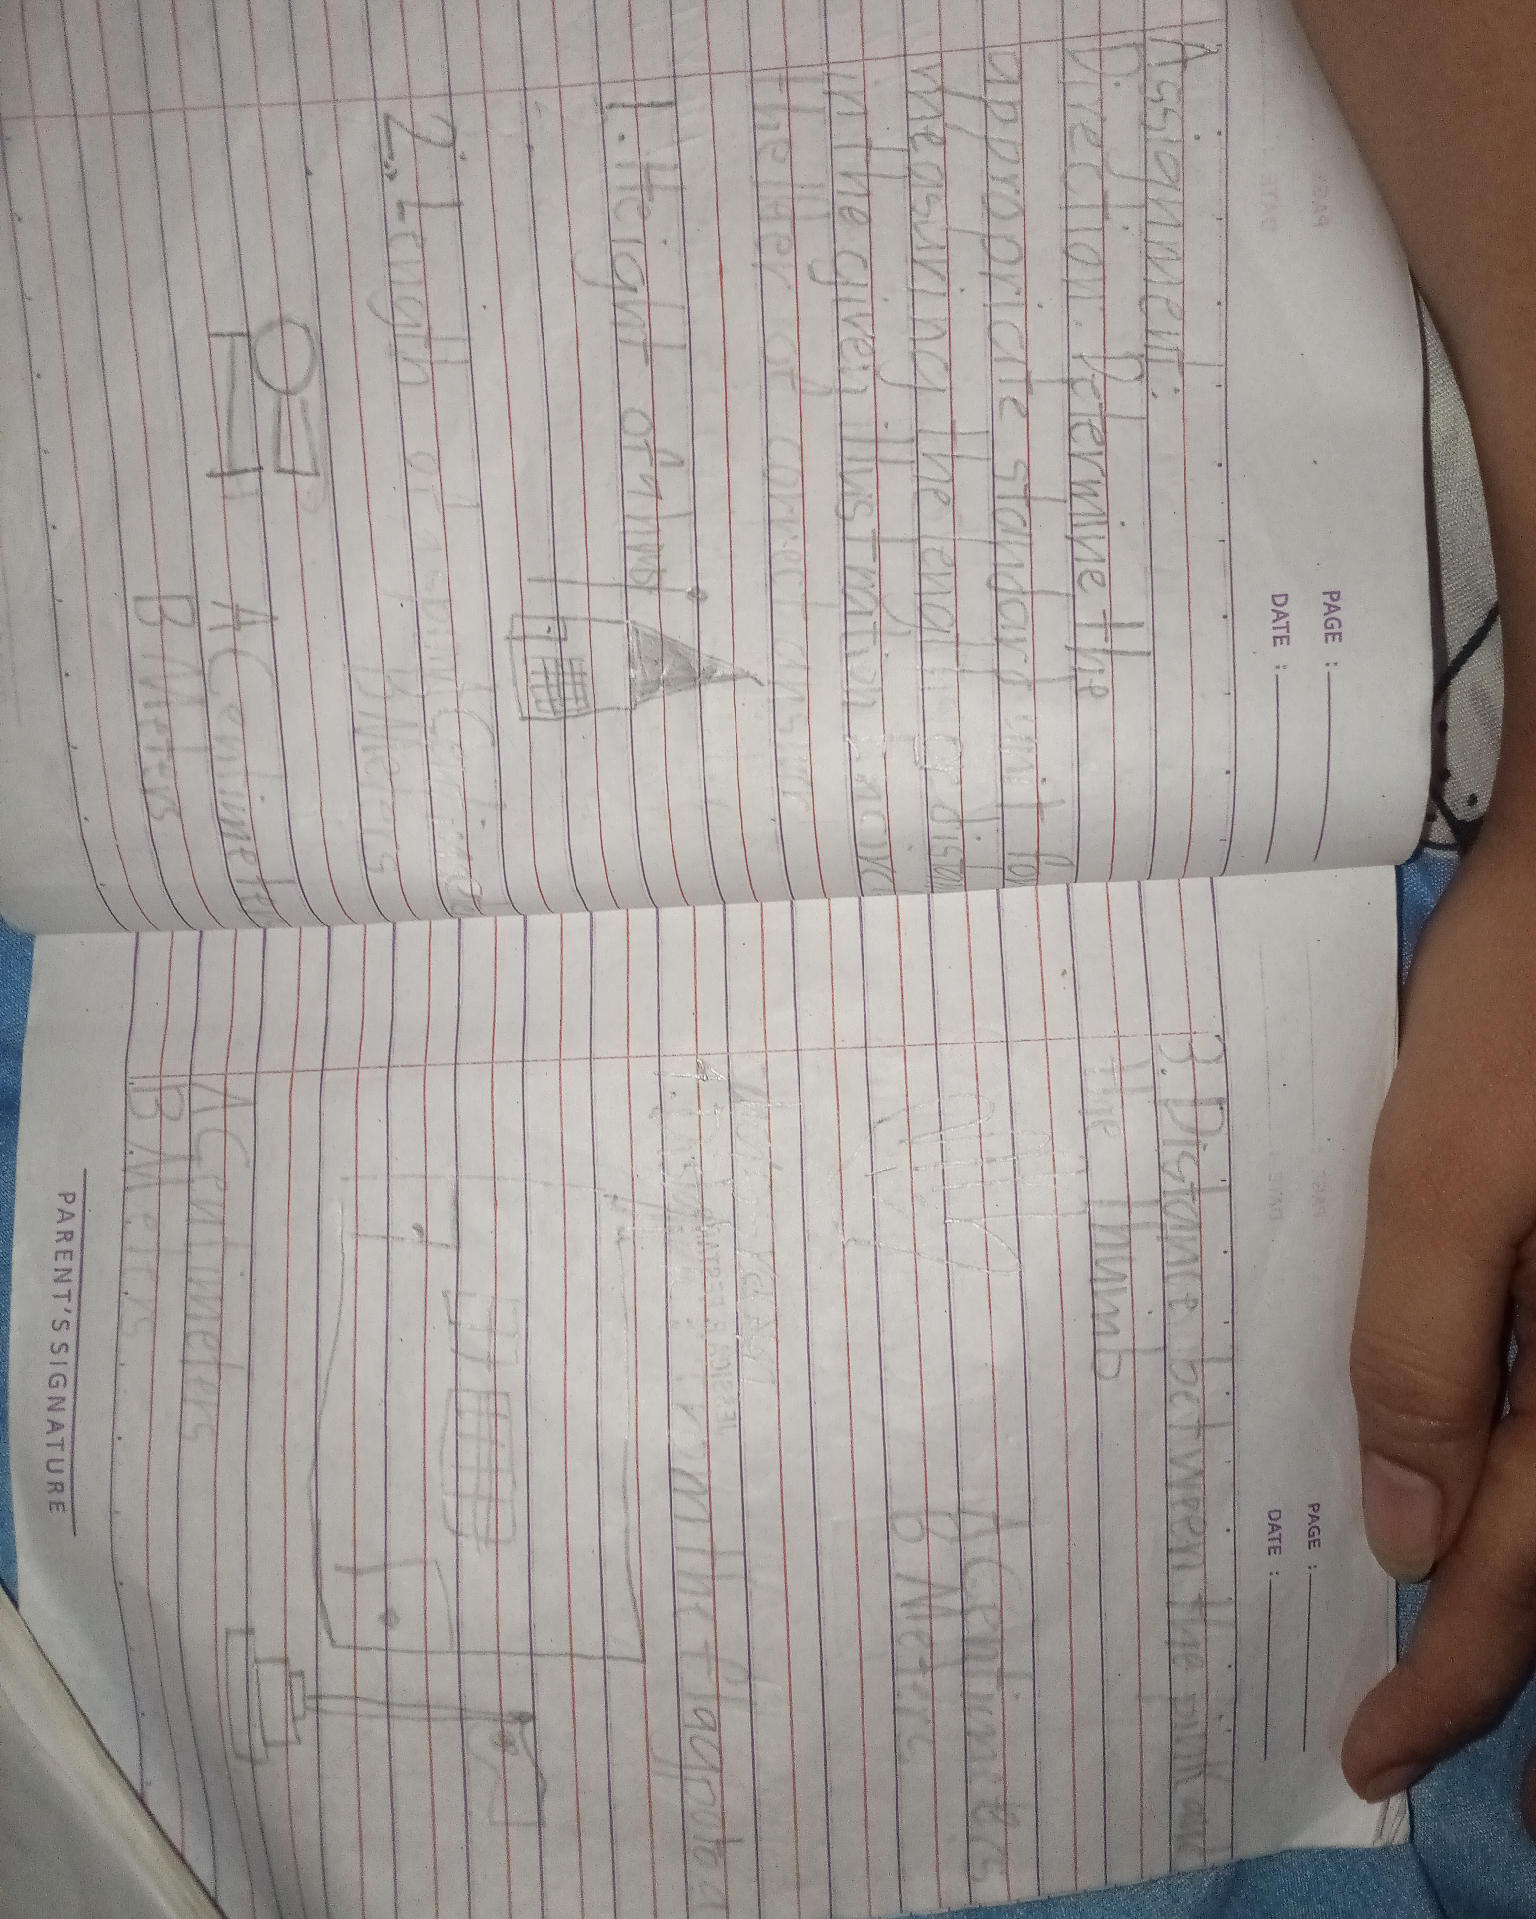 PAGE :
DATE :
Assignment:
Direction: Determine the
appropriate standard unit for
measuring the length or dista
in the given illustration Encircle
the letter of correct answer
1. Height of a hut
2. Length of a
A Centime
B Meters
A Centimeter
B Meters
PAGE :
DATE :
3. Distance between the pink and
the Thumb
A Centimeters
B Meters
4. from the flagpole
A Centimeters
B Meters
PARENT'S SIGNATURE